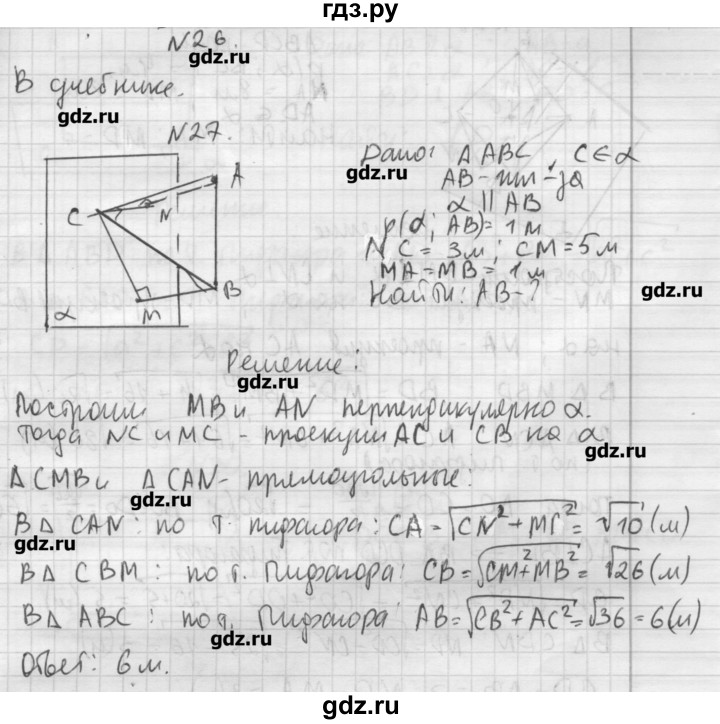 гдз.ру
N26.
gdz.ru
В учебнике.
gdz.ru
N27.
A
C
N
B
M
α
Дано: Δ ABC, C ∈ α
gdz.ru
α || AB
ρ(α; AB) = 1 м
NC = 3м; CM = 5 м
MA = MB = 1 м
gdz.ru
Найти: AB - ?
Решение:
gdz.ru
Построим MB и AN перпендикулярно α.
Тогда NC и MC - проекции AC и CB на α
gdz.ru
Δ CMB и Δ CAN - прямоугольные:
gdz.ru
В Δ CAN: по т. Пифагора: CA = √CN² + MC² = √10 (м)
gdz.ru
В Δ CBM: по т. Пифагора: CB = √CM² + MB² = √26 (м)
В Δ ABC: по т. Пифагора AB = √CB² + AC² = √36 = 6 (м)
gdz.ru
Ответ: 6 м.
gdz.ru
gdz.ru